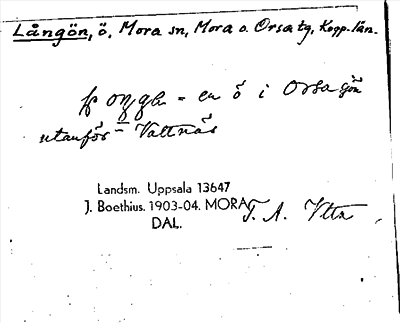 Långön, ö, Mora sn, Mora o. Orsa tg, Kopp. län.
en ö i Orsasjön
utanför Vattnäs
Landsm. Uppsala 13647
J. Boethius. 1903-04. MORA
DAL.